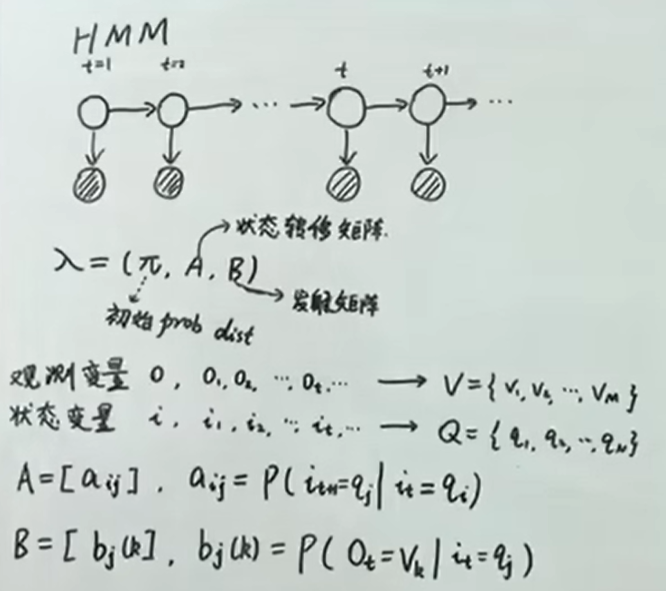 HMM
t=1 t=2 t t+1
... ...
状态转移矩阵.
λ = (π, A, B)
发射矩阵
初始 prob dist
观测变量 o, o₁, o₂, ..., oₜ, ... → V = {v₁, v₂, ..., v_M}
状态变量 i, i₁, i₂, ..., iₜ, ... → Q = {q₁, q₂, ..., q_N}
A = [aᵢⱼ], aᵢⱼ = P(iₜ₊₁ = qⱼ | iₜ = qᵢ)
B = [bⱼ(k)], bⱼ(k) = P(oₜ = vₖ | iₜ = qⱼ)